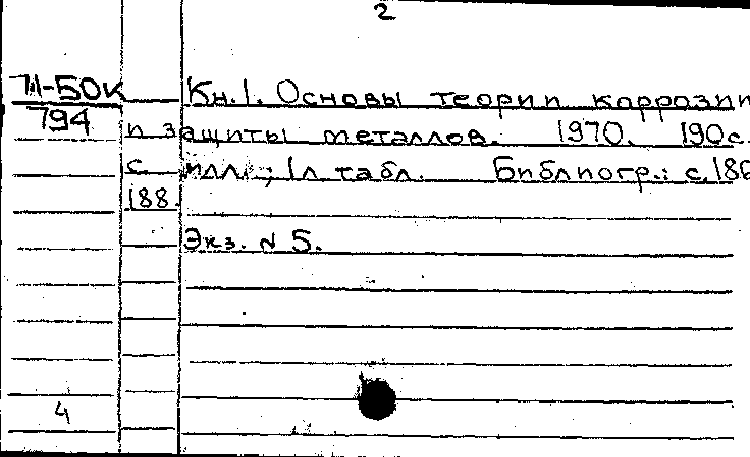 2
71-50к Кн.1. Основы теории коррозии
794 и защиты металлов. 1970. 190с.
с илл.; 1л табл. Библиогр.: с.186
188.
Экз. N 5.
4